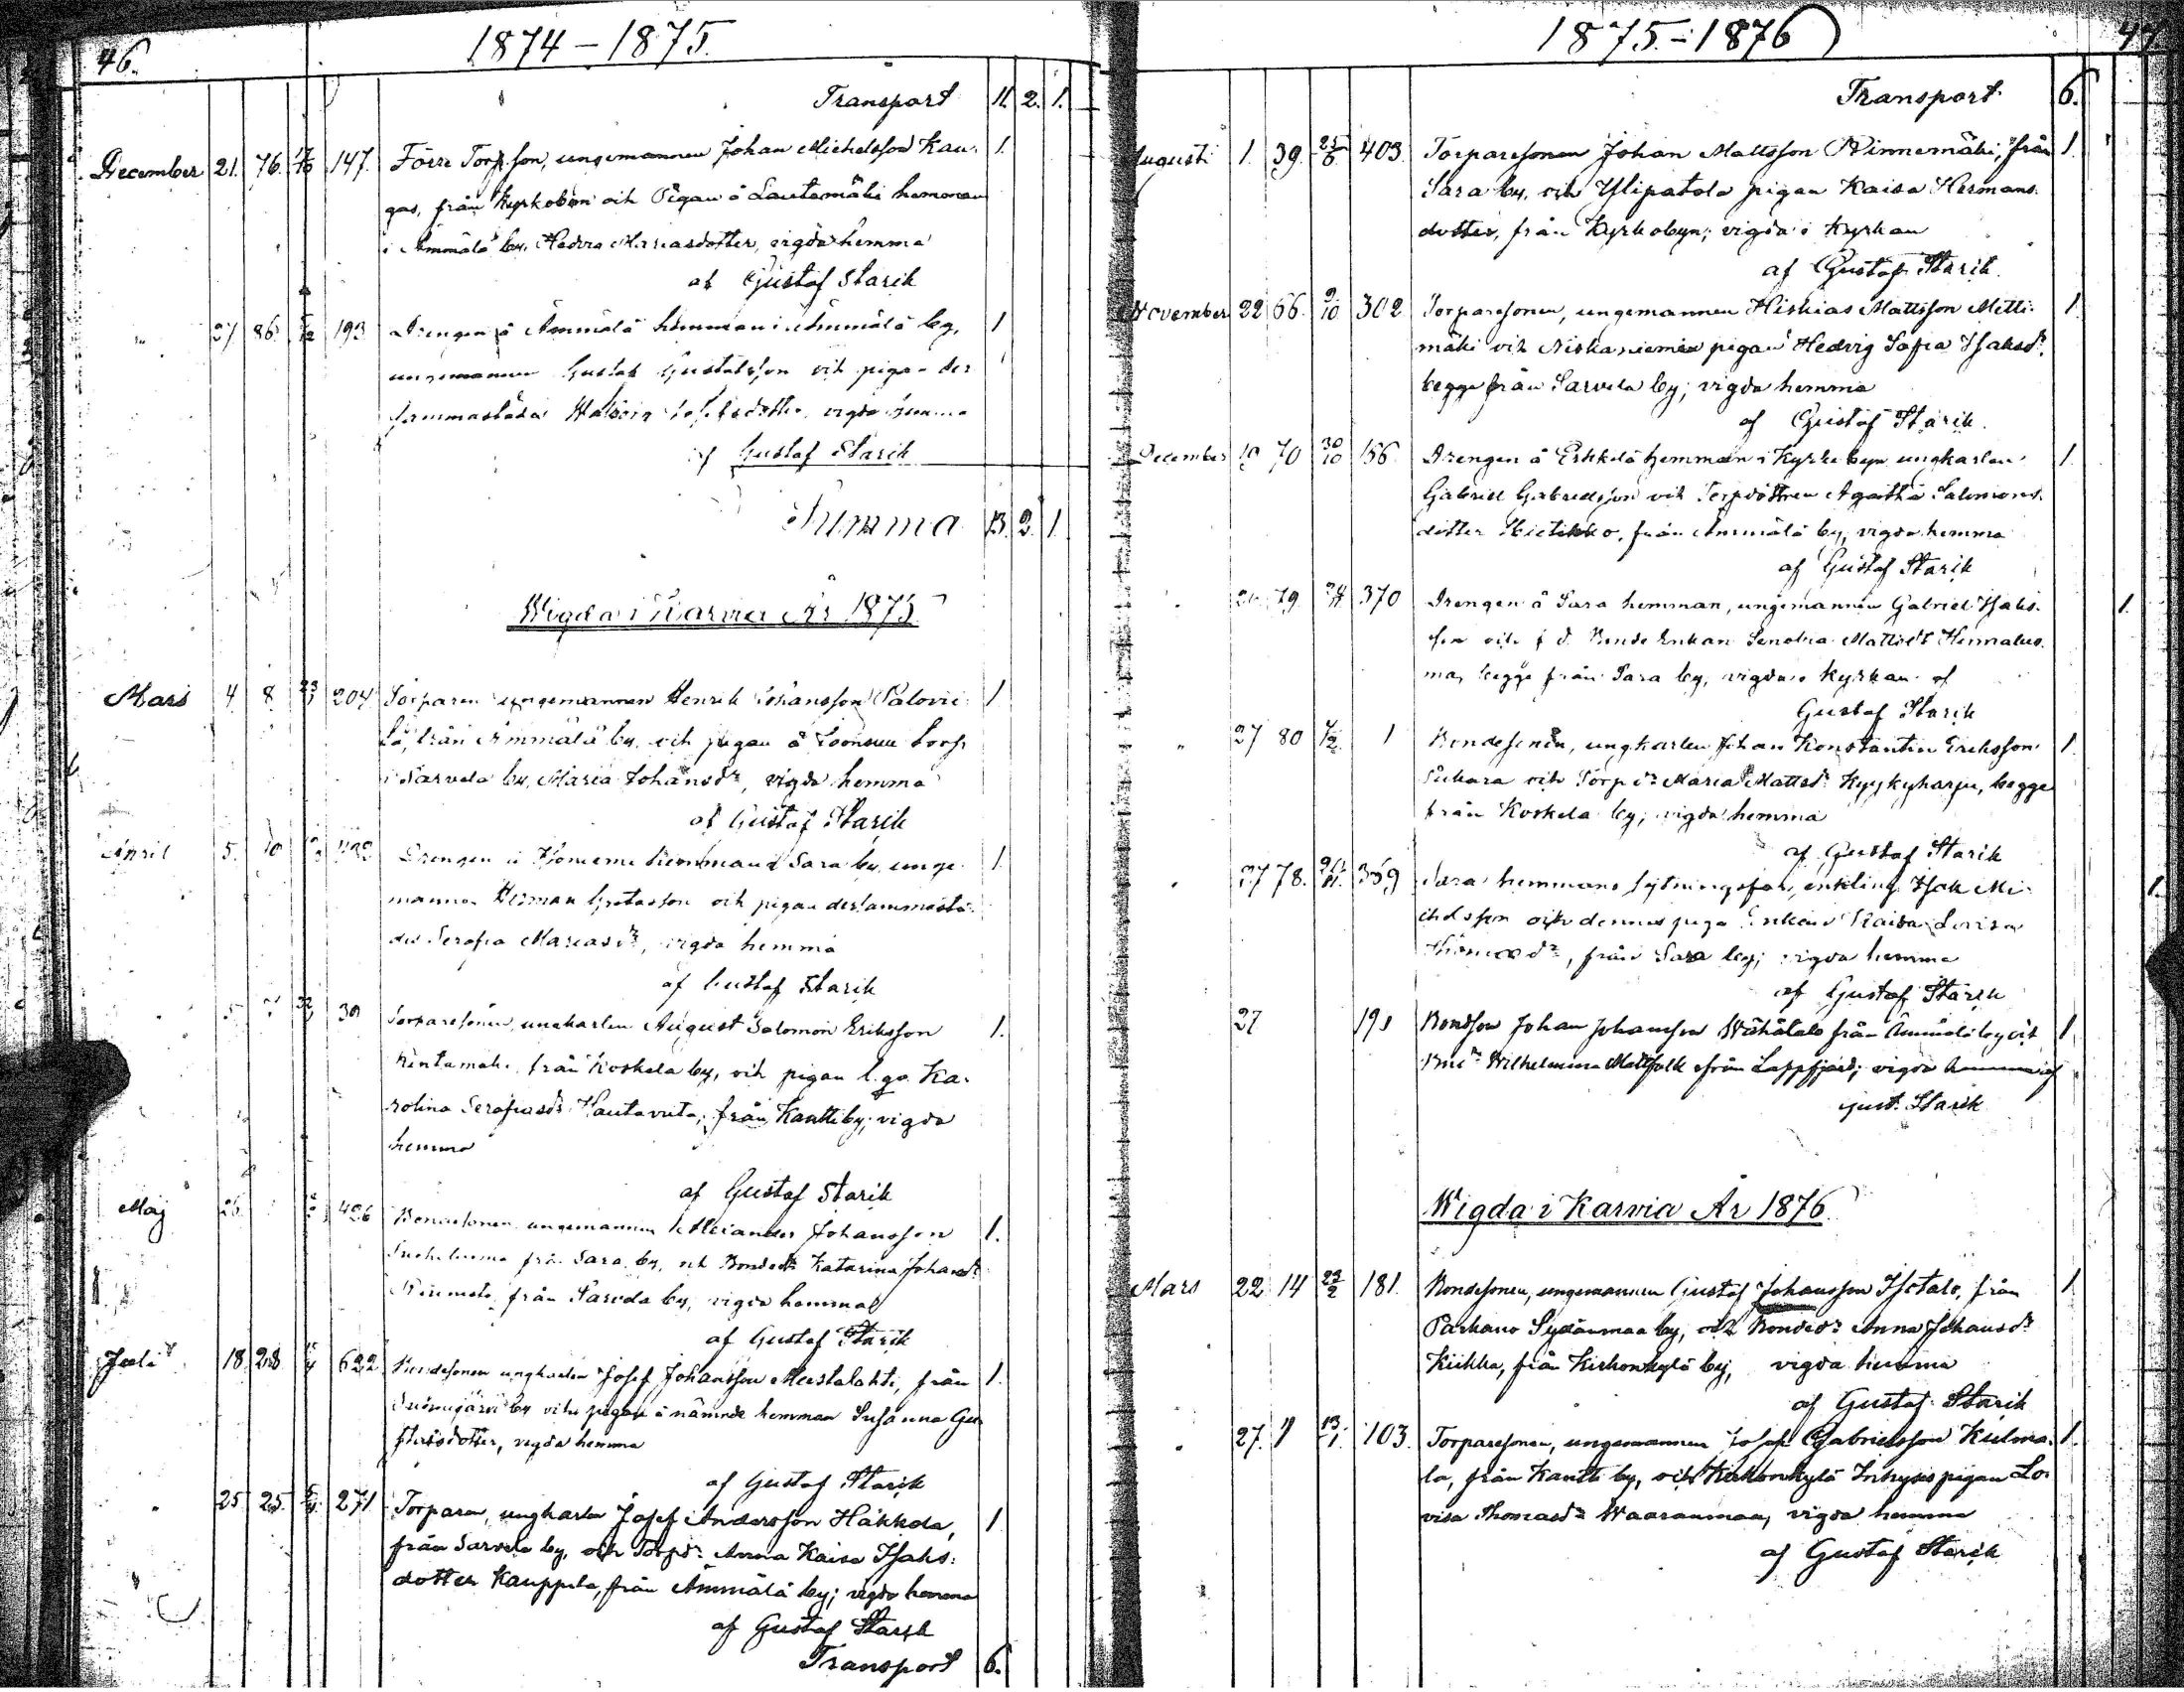 46.
1874-1875.
Transport 11. 2. 1.
December 21. 76. 147. Förre Torp.son, ungemannen Johan Michelsson Kan- 1.
gas, från Kyrkobyn och Pigan å Lautamäki hemman
i Ämmälä by, Hedva Mariasdotter, vigda hemma
af Gustaf Starik
" 27 86. 193 Drengen å Ämmälä hemman i Ämmälä by, 1
ungemannen Gustaf Gustafsson och pigan der
sammastädes vigda hemma
af Gustaf Starik
Summa 13. 2. 1.
Wigda i Karvia År 1875
Mars 4 8 204 Torparen ungemannen Henrik Johansson Palovii- 1
lä, från Ämmälä by, och pigan å Loonsuu torp
i Sarvela by, Maria Johansdr, vigda hemma
af Gustaf Starik
April 5. 10 Drengen å hemman i Sara by, unge- 1.
mannen Herman och pigan dersammastä-
des Serafia Mariasdr, vigda hemma
af Gustaf Starik
5 30 Torparesonen, ungkarlen August Salomon Eriksson 1.
från Koskela by, och pigan Ka-
rolina Serafiasdr Hautaviita, från Kantti by; vigda
hemma
af Gustaf Starik
Maj 26 426 Bondesonen ungemannen Alexander Johansson 1.
från Sara by, och Bondedr Katarina Johansdr
från Sarvela by, vigda hemma
af Gustaf Starik
Juli 18. 28 622 Bondesonen ungkarlen Josef Johansson Mustalahti, från 1.
Suomijärvi by och pigan å nämnde hemman Susanna Gu-
stafsdotter, vigda hemma
af Gustaf Starik
" 25. 25. 271 Torparen, ungkarlen Josef Andersson Häkkola, 1
från Sarvela by, och Torpdr Anna Kaisa Isaks-
dotter Kauppila, från Ämmälä by; vigda hemma
af Gustaf Starik
Transport 6.
1875.-1876
47
Transport 6.
Augusti 1. 39. 403. Torparesonen Johan Mattsson Rinnemäki, från 1.
Sara by, och Ylipatola pigan Kaisa Hermans-
dotter, från Kyrkobyn; vigda i Kyrkan
af Gustaf Starik.
November 22 66. 9/10 302 Torparesonen, ungemannen Hiskias Mattsson Metti- 1.
mäki och Niskaniemen pigan Hedvig Sofia Isaksdr,
begge från Sarvela by; vigda hemma
af Gustaf Starik.
December 19 70 30/10 156 Drengen å Eskkelä hemman i Kyrkobyn ungkarlen 1.
Gabriel Gabrielsson och Torpdottren Agatha Salomons-
dotter från Ämmälä by, vigda hemma
af Gustaf Starik
" 79 370 Drengen å Sara hemman, ungemannen Gabriel Isaks- 1.
son och f d. Bonde Enkan Senobia Mattsdr
begge från Sara by, vigda i Kyrkan af
Gustaf Starik
" 27 80 4/12 1 Bondesonen, ungkarlen Johan Konstantin Eriksson 1.
och Torpdr Maria Mattsdr Kyykyharju, begge
från Koskela by; vigda hemma
af Gustaf Starik
" 27 78. 359 Sara hemmans sytningsfar, enkling Isak Mi- 1.
chelsson och dennes piga Enkan Kaisa Lovisa
Thomasdr, från Sara by; vigda hemma
af Gustaf Starik
27 191 Bondson Johan Johansson Wähätalo från Ämmälä by och 1
Wilhelmina från Lappfjärd; vigda hemma af
Gust. Starik
Wigda i Karvia År 1876.
Mars 22 14 22/2 181. Bondesonen, ungemannen Gustaf Johansson Isotalo, från 1
Parkano Sydänmaa by, och Bondedr Anna Johansdr
Kiikka, från Kirkonkylä by, vigda hemma
af Gustaf Starik
" 27. 9 13/1 103. Torparesonen, ungemannen Josef Gabrielsson Kulma- 1.
la, från Kantti by, och Kirkonkylä Inhyses pigan Lo-
visa Thomasdr Waaranmaa, vigda hemma
af Gustaf Starik